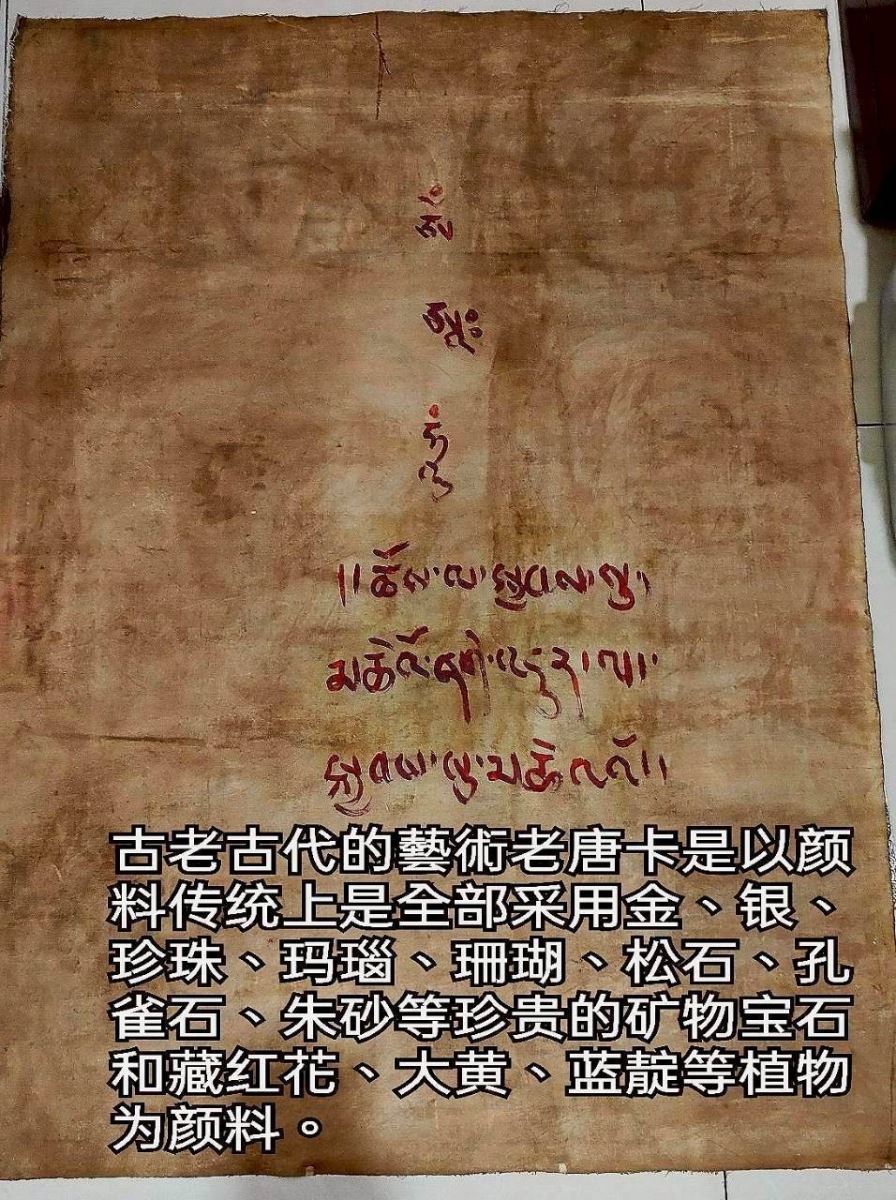 ཨོཾ
ཨཱཿ
ཧཱུྃ
།།ཆོས་ལ་སྐྱབས་སུ་
མཆིའོ་
སྐྱབས་སུ་མཆིའོ།།
古老古代的藝術老唐卡是以颜
料传统上是全部采用金、银、
珍珠、玛瑙、珊瑚、松石、孔
雀石、朱砂等珍贵的矿物宝石
和藏红花、大黄、蓝靛等植物
为颜料。